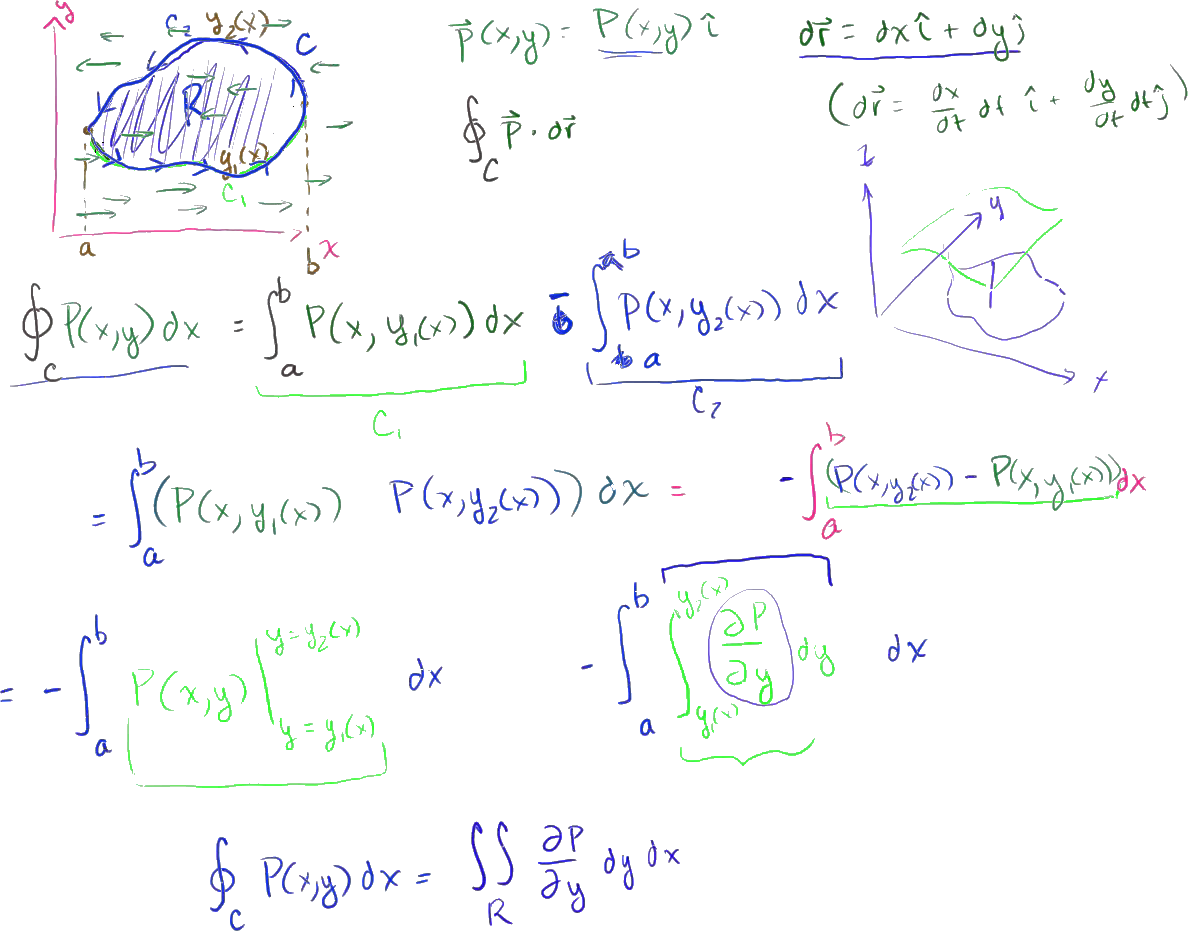 y C₂ y₂(x) C
R
y₁(x)
C₁
a b x
P⃗(x,y) = P(x,y) î
dr⃗ = dx î + dy ĵ
(dr⃗ = dx/dt dt î + dy/dt dt ĵ)
∮_C P⃗ · dr⃗
z y x
∮_C P(x,y) dx = ∫_a^b P(x, y₁(x)) dx - ∫_a^b P(x, y₂(x)) dx
C₁ C₂
= ∫_a^b (P(x, y₁(x)) P(x, y₂(x))) dx = - ∫_a^b (P(x, y₂(x)) - P(x, y₁(x))) dx
= - ∫_a^b P(x,y) |_{y = y₁(x)}^{y = y₂(x)} dx - ∫_a^b ∫_{y₁(x)}^{y₂(x)} ∂P/∂y dy dx
∮_C P(x,y) dx = ∬_R ∂P/∂y dy dx